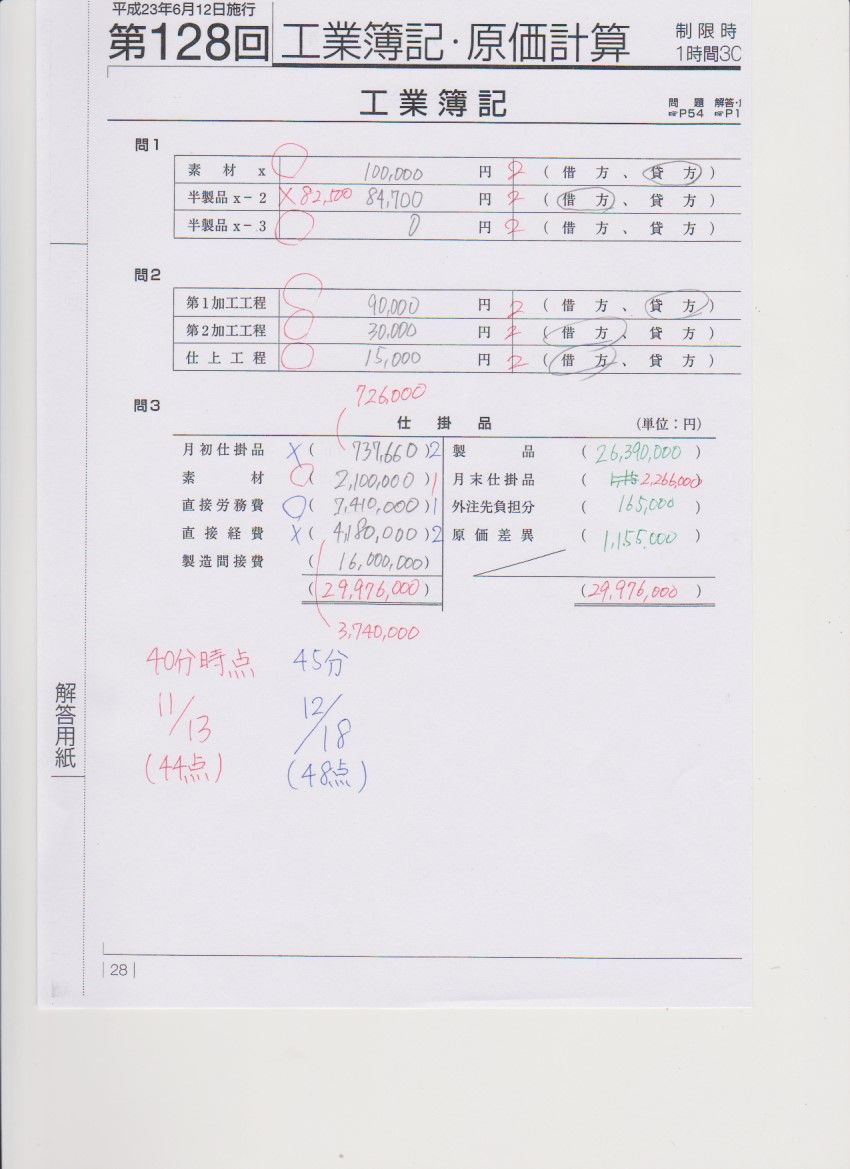 平成23年6月12日施行
第128回 工業簿記・原価計算 制限時
1時間30
工業簿記
問題 解答・
☞P54 ☞P1
問1
素材x 100,000 円 2 (借方、貸方)
半製品x-2 × 82,500 84,700 円 2 (借方、貸方)
半製品x-3 0 円 2 (借方、貸方)
問2
第1加工工程 90,000 円 2 (借方、貸方)
第2加工工程 30,000 円 2 (借方、貸方)
仕上工程 15,000 円 2 (借方、貸方)
726,000
問3
仕掛品 (単位:円)
月初仕掛品 × ( 737,660 ) 2 製品 ( 26,390,000 )
素材 ( 2,100,000 ) 1 月末仕掛品 ( 2,266,000 )
直接労務費 ( 7,410,000 ) 1 外注先負担分 ( 165,000 )
直接経費 × ( 4,180,000 ) 2 原価差異 ( 1,155,000 )
製造間接費 ( 16,000,000 )
( 29,976,000 ) ( 29,976,000 )
3,740,000
40分時点 45分
11/13 12/18
(44点) (48点)
解答用紙
28